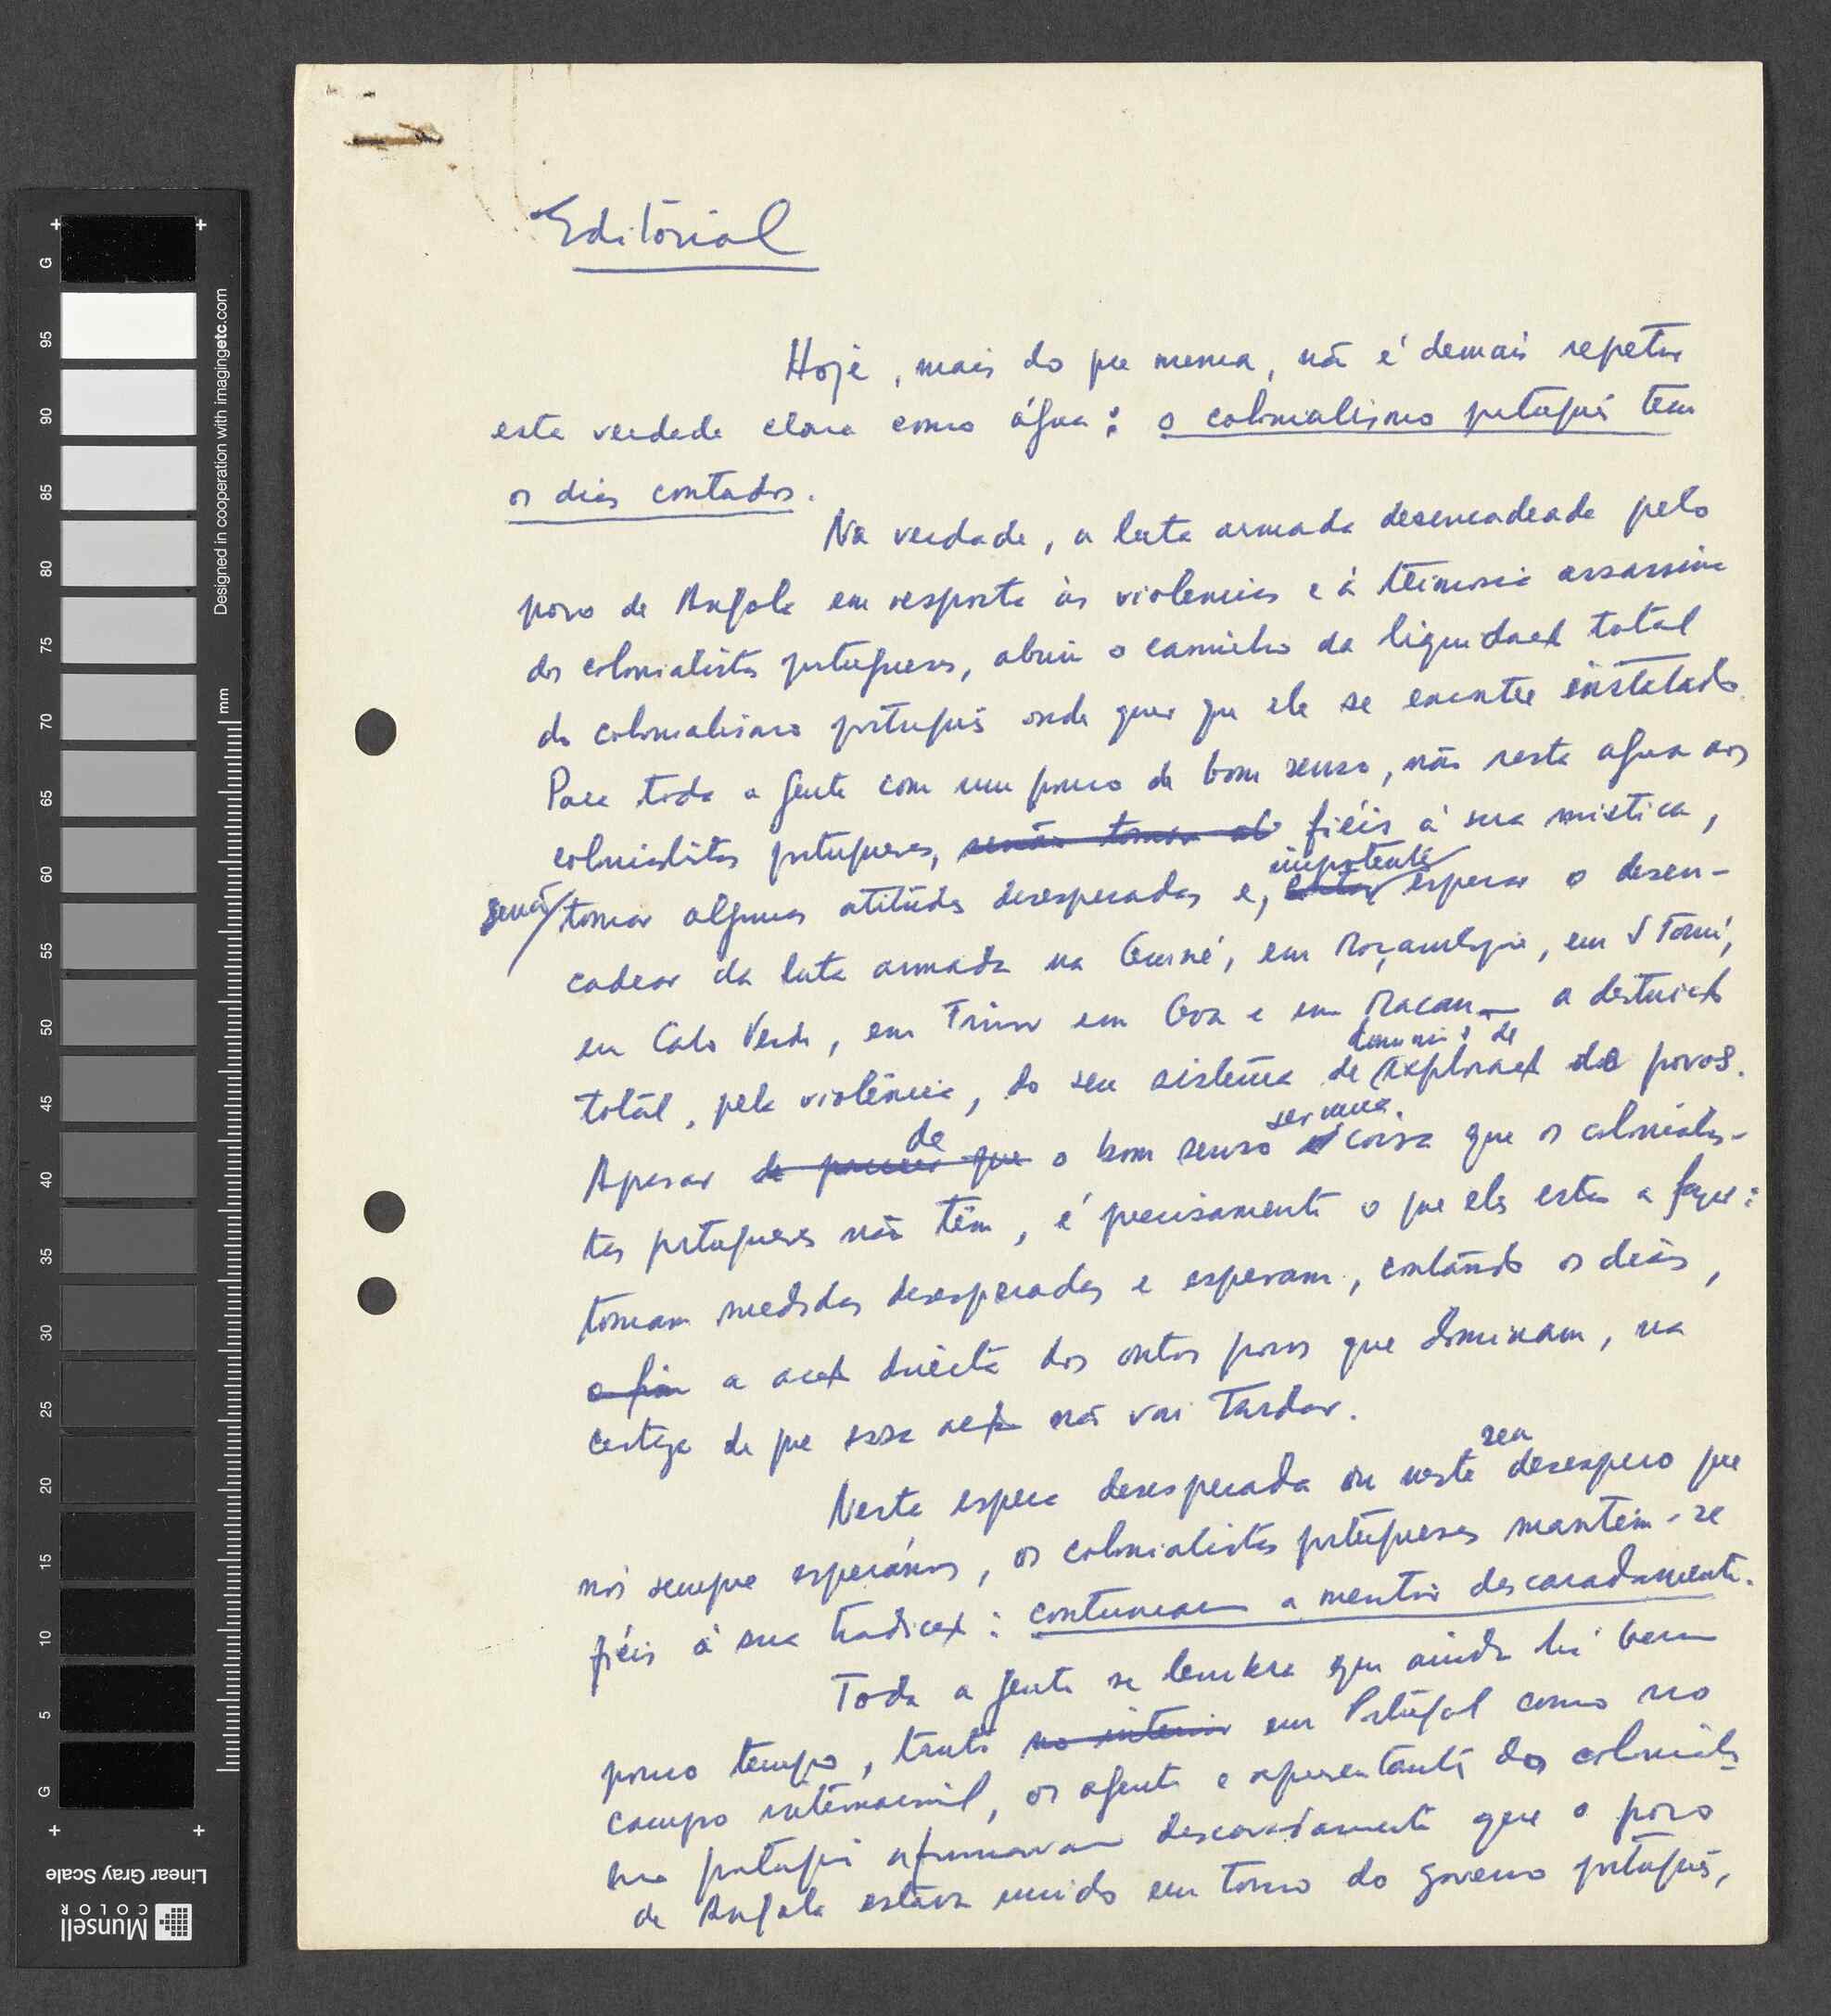 Editorial
Hoje, mais do que nunca, não é demais repetir
esta verdade clara como água: o colonialismo português tem
os dias contados.
Na verdade, a luta armada desencadeada pelo
povo de Angola em resposta às violencias e à teimosia assassina
dos colonialistas portugueses, abriu o caminho da liquidação total
do colonialismo português onde quer que ele se encontre instalado.
Para toda a gente com um pouco de bom senso, não resta agora aos
colonialistas portugueses, senão tomar at fiéis à sua mistica,
senão tomar algumas atitudes desesperadas e, impotentes esperar o desen-
cadear da luta armada na Guiné, em Moçambique, em S Tomé,
em Cabo Verde, em Timor em Goa e em Macau — a destruição
total, pela violência, do seu sistema de dominio e de exploração de povos.
Apesar de parecer que de o bom senso ser uma coisa que os colonialis-
tas portugueses não têm, é precisamente o que eles estão a fazer:
tomam medidas desesperadas e esperam, contando os dias,
o fim a acção directa dos outros povos que dominam, na
certeza de que essa acção não vai tardar.
Nesta espera desesperada ou neste seu desespero que
nós sempre esperámos, os colonialistas portugueses mantêm-se
fiéis à sua tradição: continuam a mentir descaradamente.
Toda a gente se lembra que ainda há bem
pouco tempo, tanto no interior em Portugal como no
campo internacional, os agentes e representantes do colonialis-
mo português afirmavam descaradamente que o povo
de Angola estava unido em torno do governo português,
Designed in cooperation with imagingetc.com
mm
G
95
90
85
80
75
70
65
60
55
50
45
40
35
30
25
20
15
10
5
G
Linear Gray Scale
Munsell
COLOR